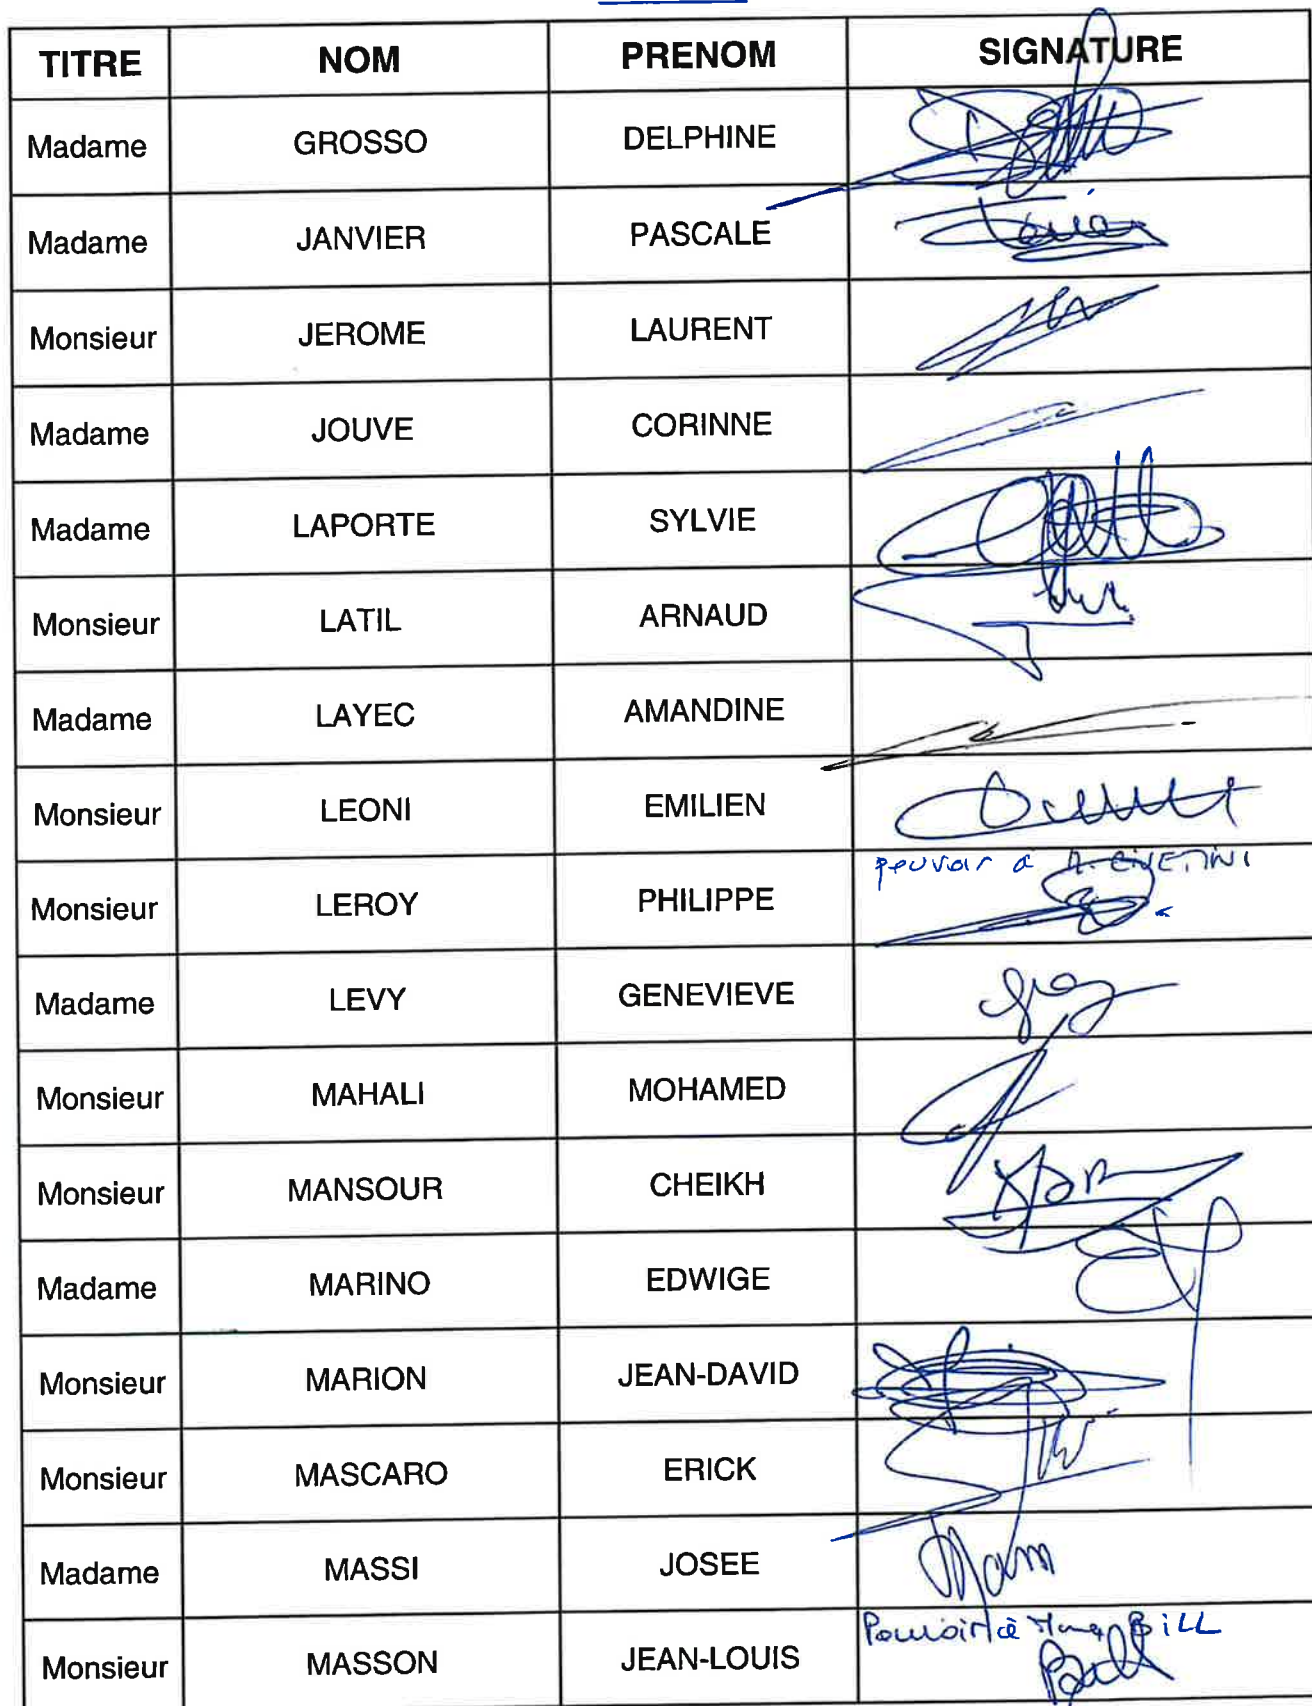 TITRE NOM PRENOM SIGNATURE
Madame GROSSO DELPHINE
Madame JANVIER PASCALE
Monsieur JEROME LAURENT
Madame JOUVE CORINNE
Madame LAPORTE SYLVIE
Monsieur LATIL ARNAUD
Madame LAYEC AMANDINE
Monsieur LEONI EMILIEN
pouvoir à
Monsieur LEROY PHILIPPE
Madame LEVY GENEVIEVE
Monsieur MAHALI MOHAMED
Monsieur MANSOUR CHEIKH
Madame MARINO EDWIGE
Monsieur MARION JEAN-DAVID
Monsieur MASCARO ERICK
Madame MASSI JOSEE
Pouvoir à BILL
Monsieur MASSON JEAN-LOUIS